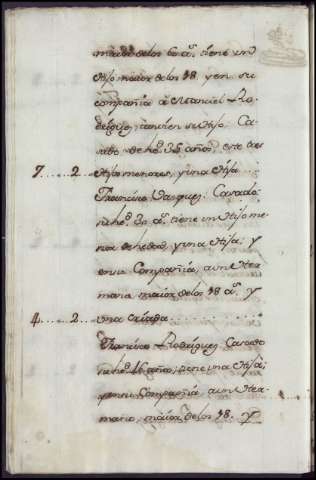 maior delos 60 a.s tiene un
Hijo maior de los 18. y en su
compañia a Manuel Ro-
driguez, tanvien su Hijo. Ca-
sado de h.d 36 años, este tres
7.....2. Hijos menores, y una Hija...
Francisco Vazquez. Casado
de h.d 30 a.s tiene un Hijo me-
nor de hedad, y una Hija; y
en su Compañia, a un Her
mano maior delos 18 a.s y
4.....2. una criada..........
Francisco Rodriguez. Casado
de h.d 46 años, tiene una Hija;
y en su Compañia a un Her-
mano, maior delos 18. y